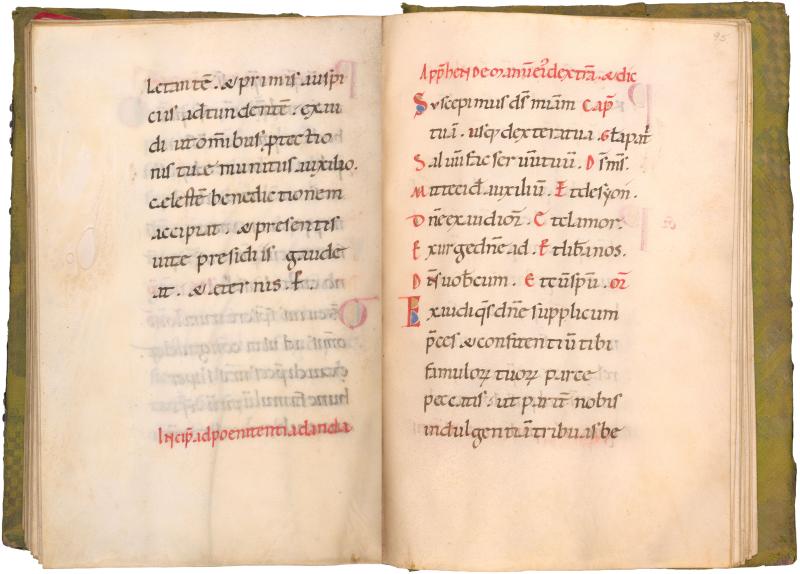 letantē. & primis auspi
ciis adtundentē. exau
di ut om̄ibus ꝓtectio
nis tue munitus auxilio.
celestē benedictionem
accipiat. & presentis
uite presidiis gaude
at. & eternis.
Incip̄ ad poenitentia danda
95
App̄hende manū ei' dextrā. & dic
Suscepimus ds̄ mīam Cap̄
tuā. usq; dextera tua
Saluū fac seruū tuū. Ds̄ ms̄.
Mitte ei d̄ auxiliū. Et de syon.
Dn̄e exaudi or̄. Et clamor.
Exurge dn̄e ad. Et liba nos.
Dn̄s uobcum. Et cū sp̄u. or̄
Exaudi qs̄ dn̄e supplicum
p̄ces & confitentiū tibi
famuloꝝ tuoꝝ parce
peccatis. ut parit̄ nobis
indulgentiā tribuas be